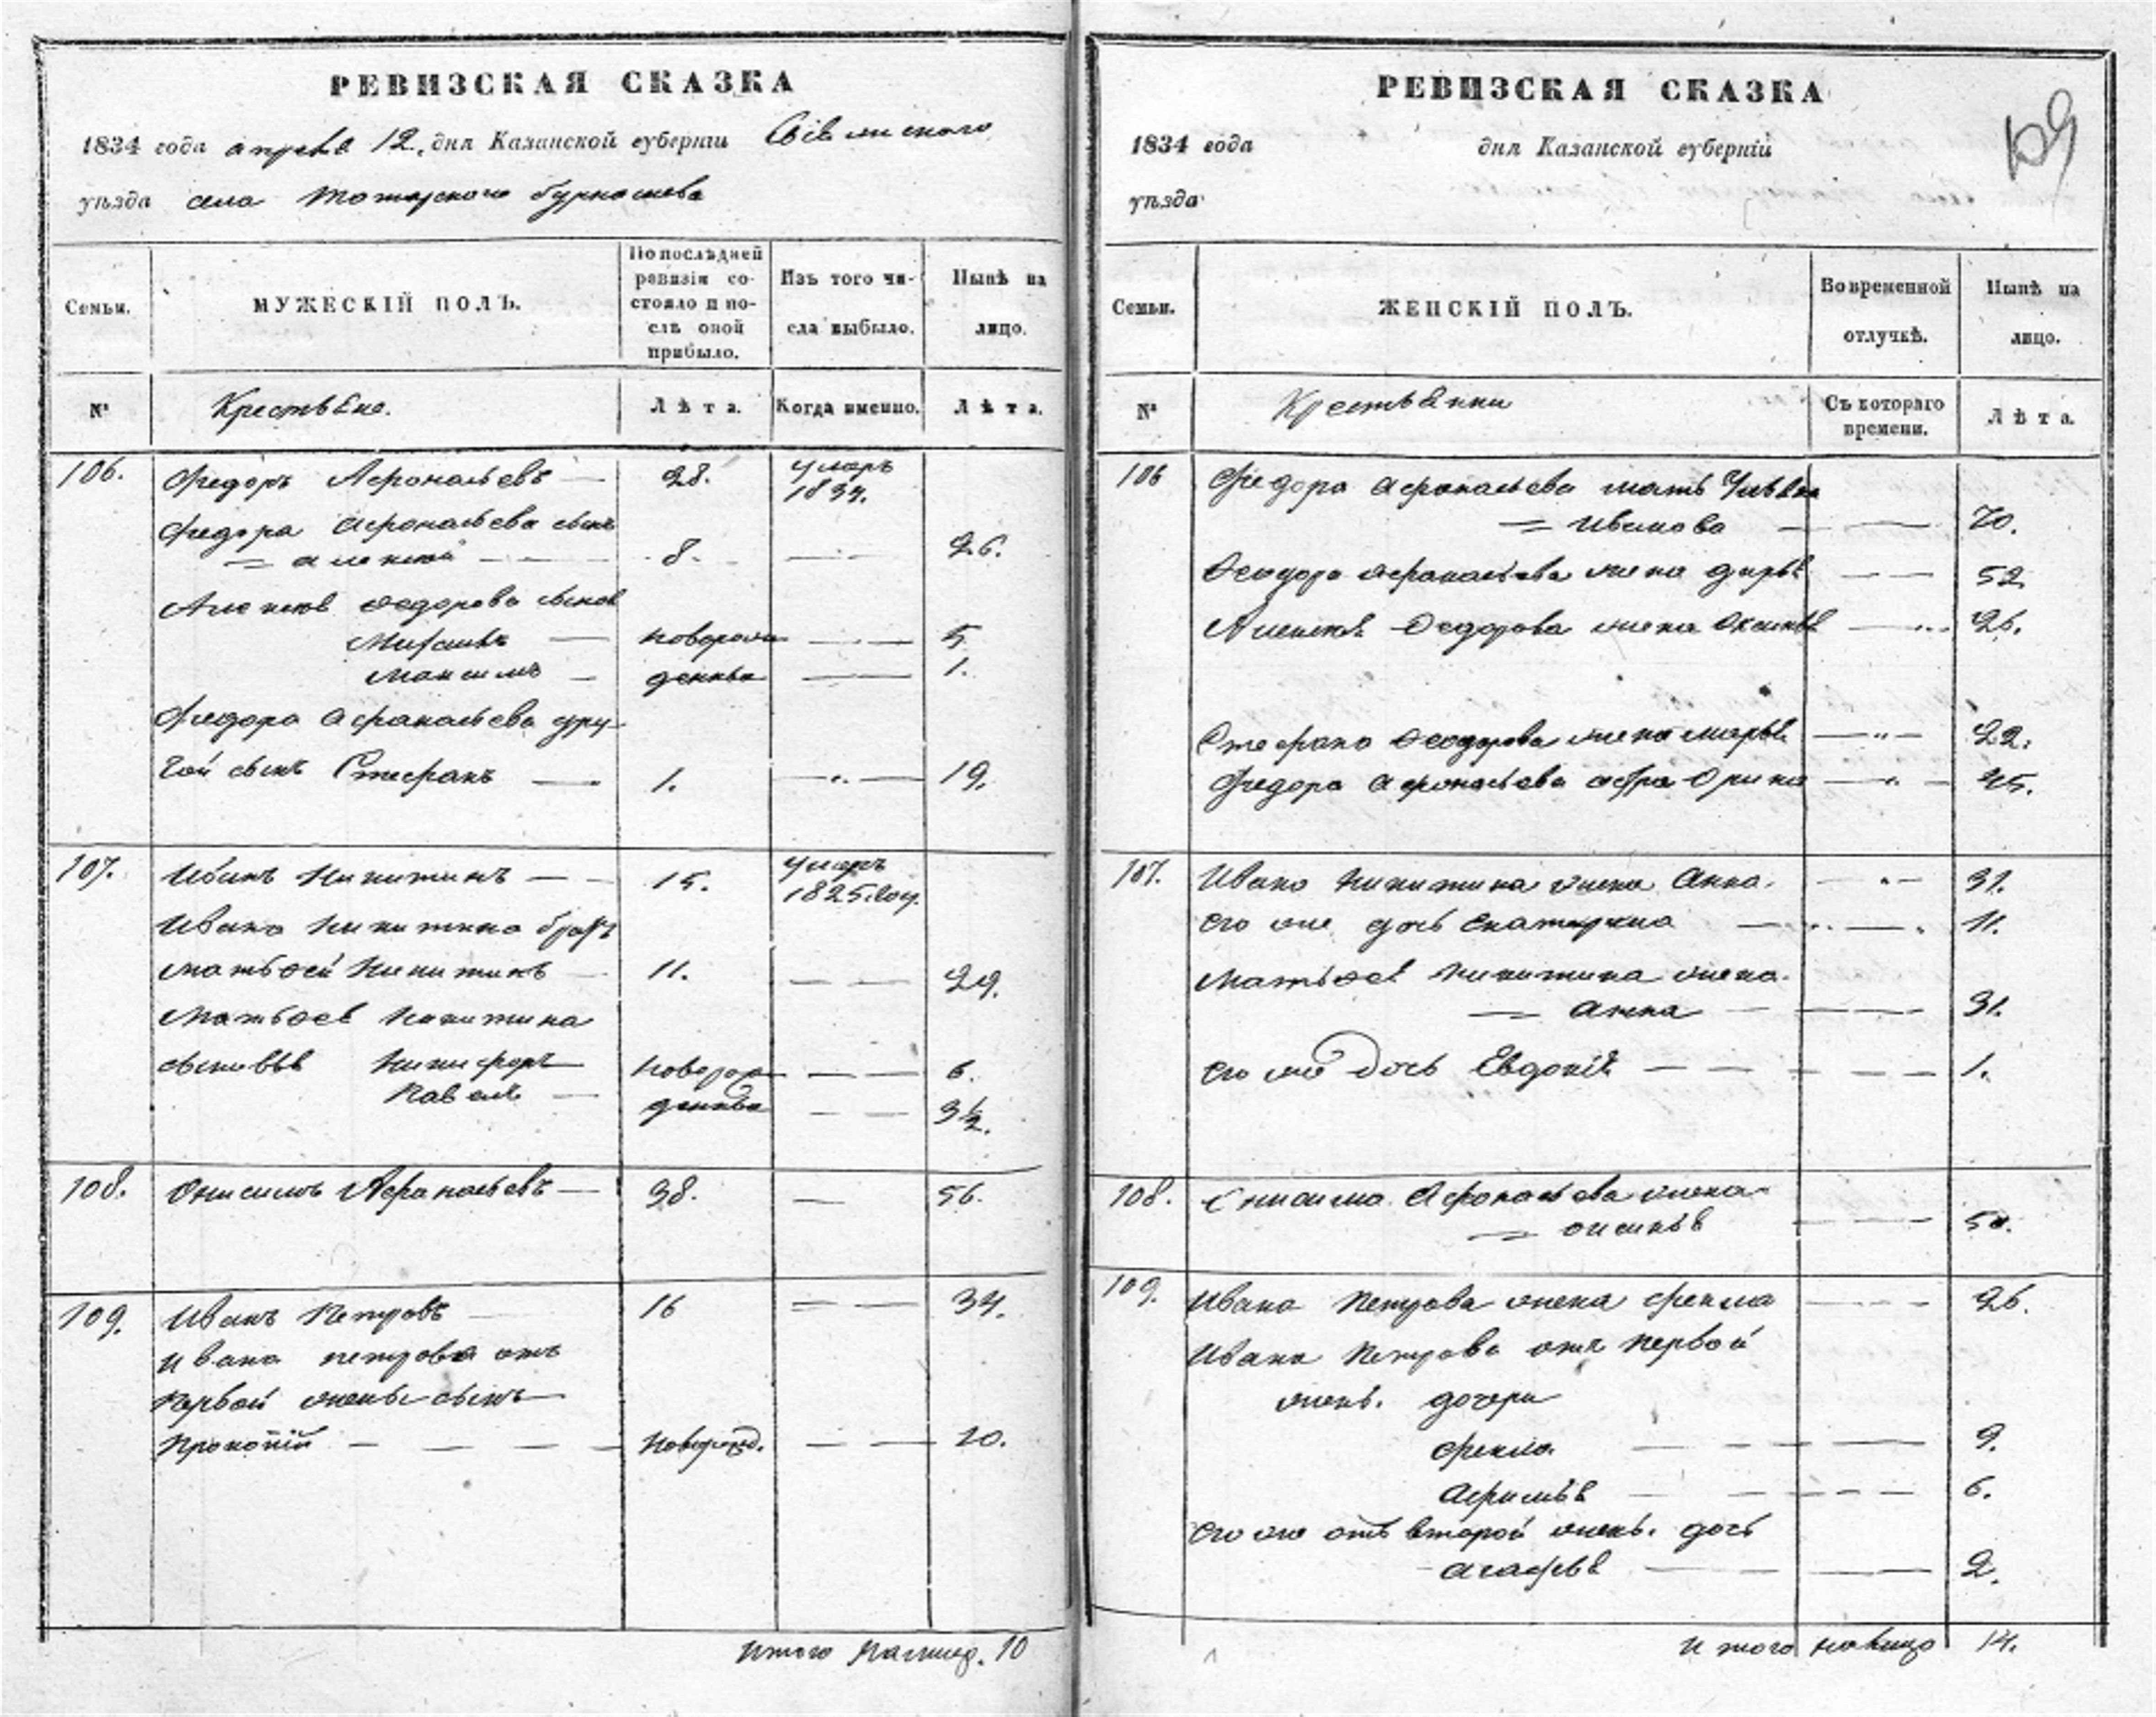 РЕВИЗСКАЯ СКАЗКА
1834 года апреля 12. дня Казанской губернии Свіяжскаго
уѣзда села Татарскаго бурнашева
Семьи.
МУЖЕСКІЙ ПОЛЪ.
По послѣдней ревизіи состояло и послѣ оной прибыло.
Изъ того числа выбыло.
Нынѣ на лицо.
№
Крестьяне.
Лѣта.
Когда именно.
Лѣта.
106. Федоръ Афонасьевъ — 28. умеръ 1834.
Федора Афонасьева сынъ
= алексей — 8. — 26.
Алексея Федорова сыновья
Михаилъ — новорож — 5
Максимъ — денные — 1.
Федора Афанасьева дру-
гой сынъ Стефанъ — 1. — 19.
107. Иванъ Никитинъ — 15. умеръ 1825. году.
Ивана Никитина братъ
Матвѳей Никитинъ — 11. — 29.
Матвѳея Никитина
сыновья Никифоръ новорож — 6.
Павелъ — денные — 3½.
108. Онисимъ Афанасьевъ — 38. — 56.
109. Иванъ Петровъ — 16 — 34.
Ивана петрова отъ
Первой жены сынъ
Прокопій — новорожд. — 10.
Итого налицо. 10
РЕВИЗСКАЯ СКАЗКА
1834 года дня Казанской губерніи
уѣзда
Семьи.
ЖЕНСКІЙ ПОЛЪ.
Во временной отлучкѣ.
Нынѣ на лицо.
№
Крестьянки
Съ котораго времени.
Лѣта.
106 Федора Афанасьева мать
= Иванова — 70.
Ѳеодора Афанасьева жена дарья — 52
Алексея Ѳедорова жена Оксинья — 26.
Стефана Ѳеодорова жена марья — 22.
Федора Афонасьева Орина — 45.
107. Ивана Никитина жена Анна. — 31.
его же дочь Екатерина — 11.
Матвѳея Никитина жена.
= Анна — 31.
его же Дочь Евдокія — 1.
108. Онисима Афонасьева жена
= оксинья — 50.
109. Ивана Петрова жена фекла — 26.
Ивана Петрова отъ первой
жены. дочери
фекла. — 9.
Афимья — 6.
его же отъ второй жены. дочь
агафья — 2.
Итого налицо 14.